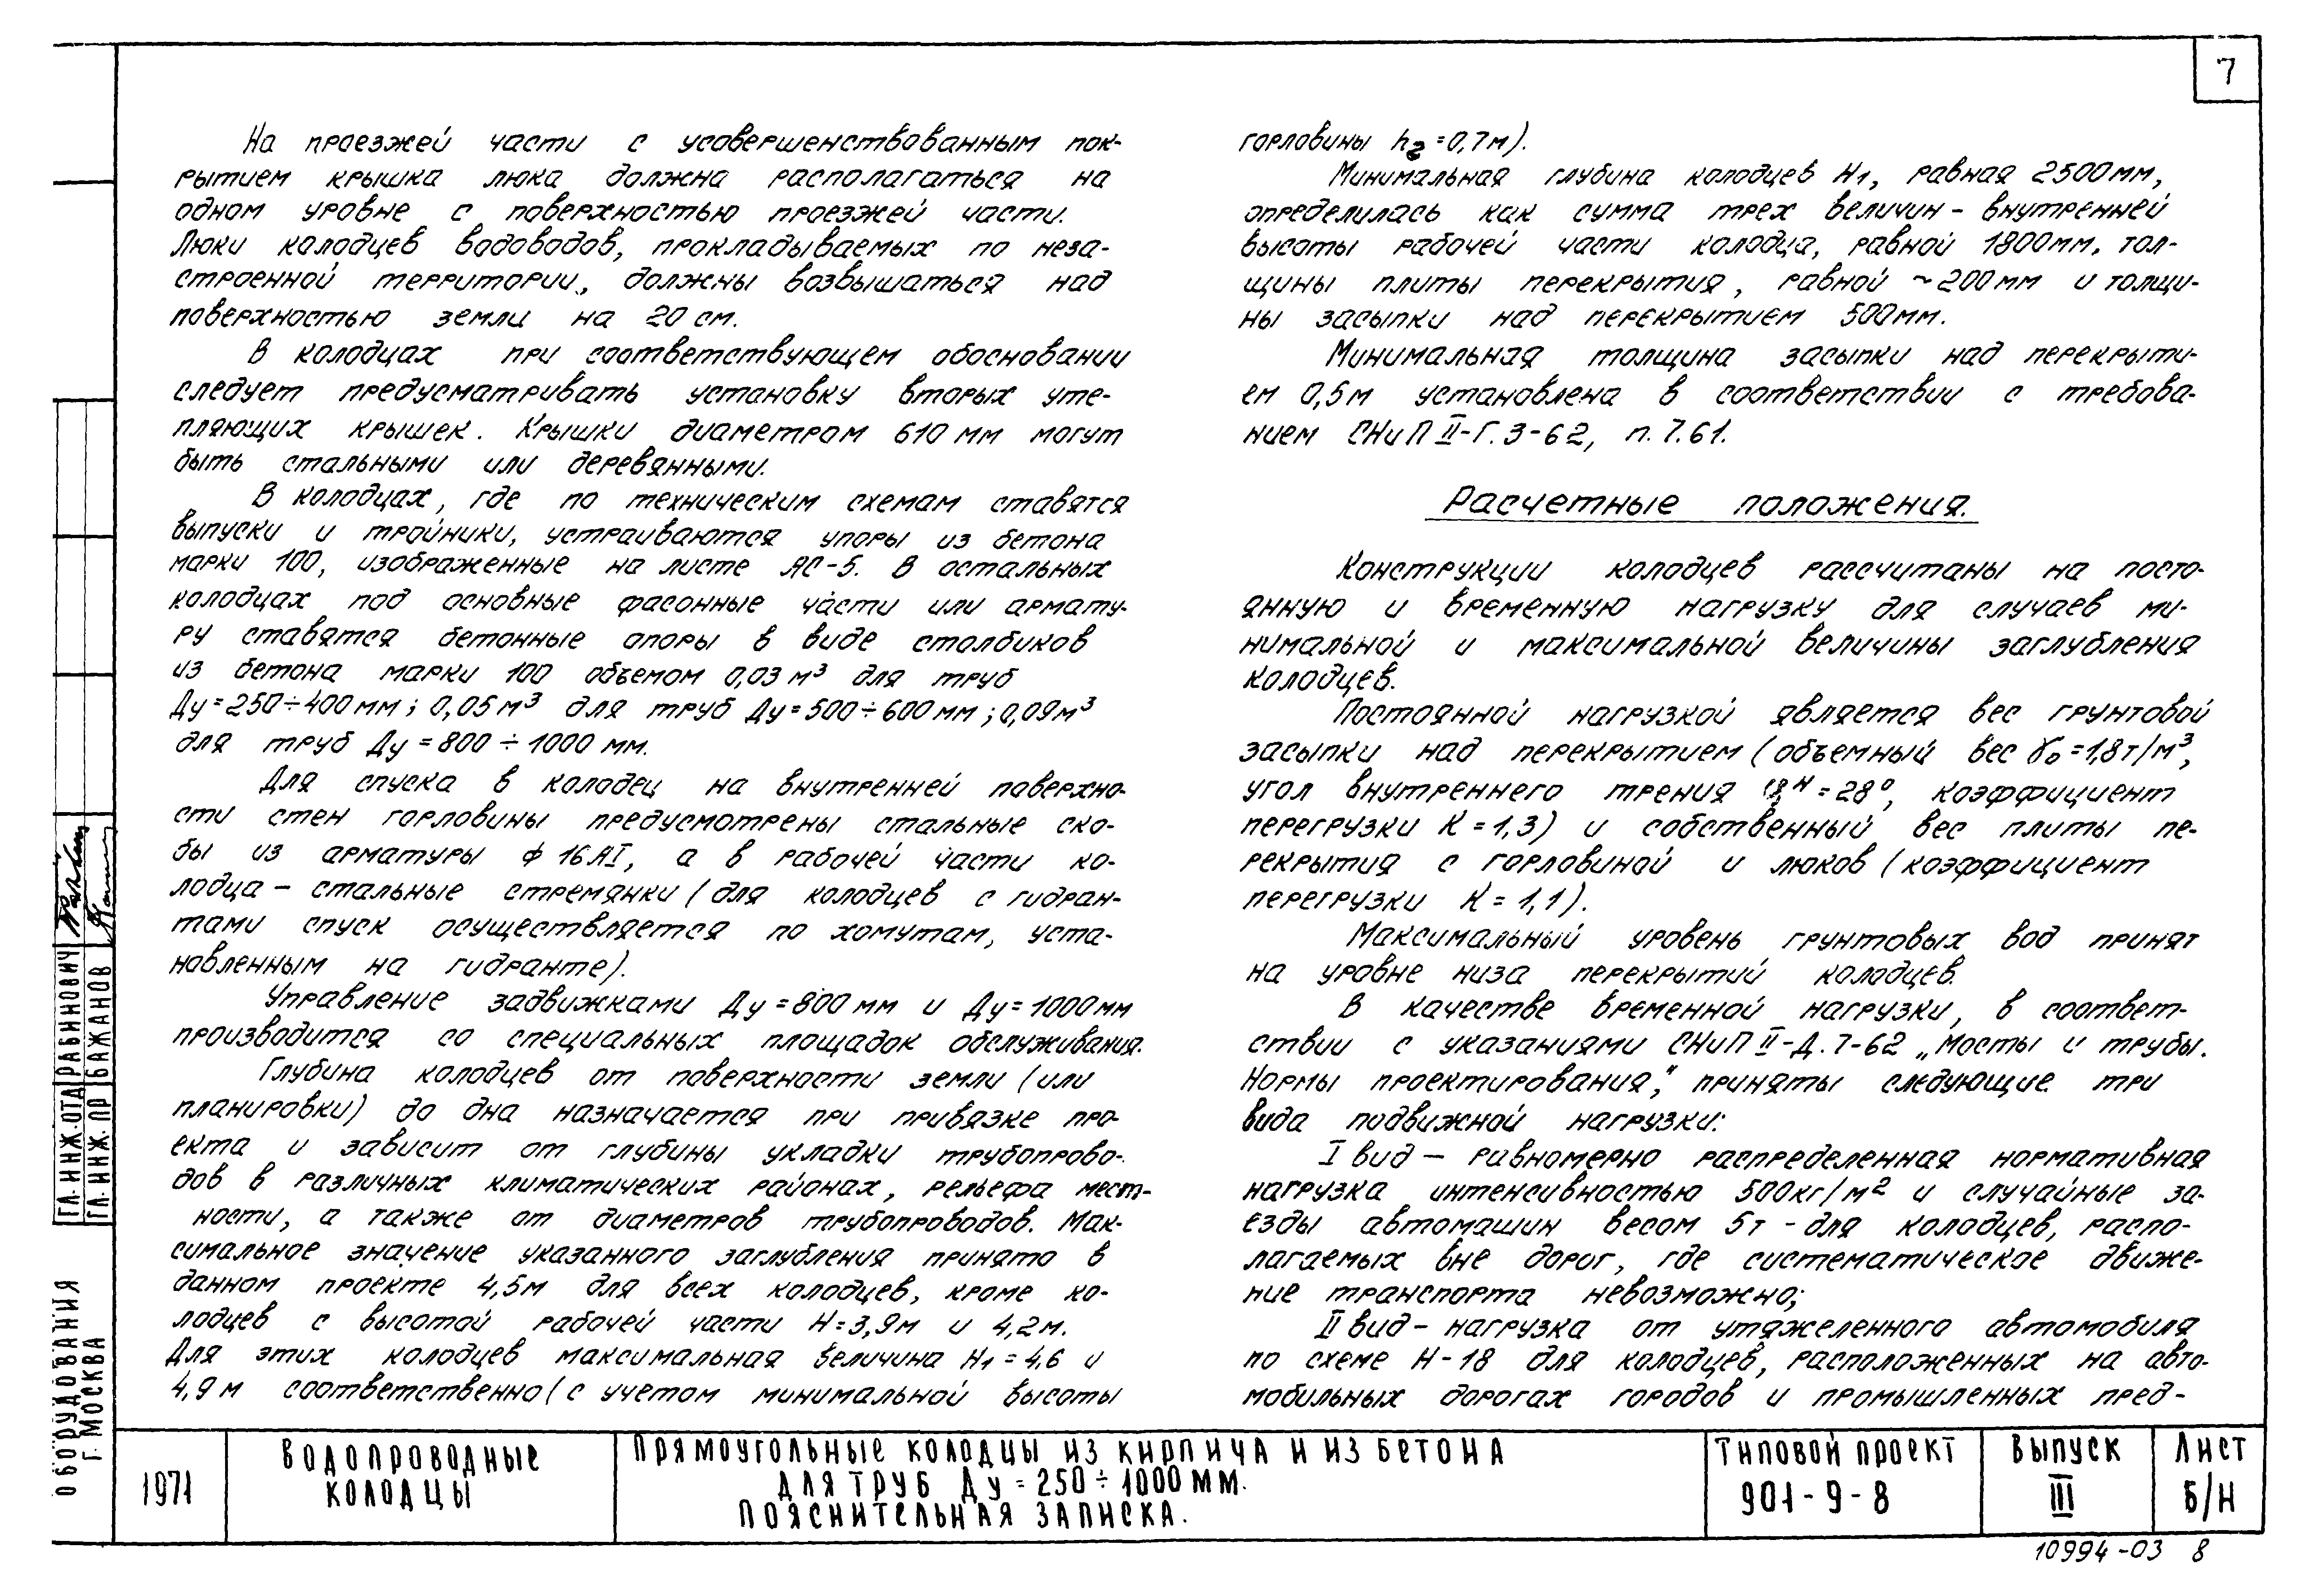 7
На проезжей части с усовершенствованным пок-
рытием крышка люка должна располагаться на
одном уровне с поверхностью проезжей части.
Люки колодцев водоводов, прокладываемых по неза-
строенной территории, должны возвышаться над
поверхностью земли на 20 см.
В колодцах при соответствующем обосновании
следует предусматривать установку вторых уте-
пляющих крышек. Крышки диаметром 610 мм могут
быть стальными или деревянными.
В колодцах, где по техническим схемам ставятся
выпуски и тройники, устраиваются упоры из бетона
марки 100, изображенные на листе АС-5. В остальных
колодцах под основные фасонные части или армату-
ру ставятся бетонные опоры в виде столбиков
из бетона марки 100 объемом 0,03 м³ для труб
Ду=250÷400 мм; 0,05 м³ для труб Ду=500÷600 мм; 0,09м³
для труб Ду=800÷1000 мм.
Для спуска в колодец на внутренней поверхно-
сти стен горловины предусмотрены стальные ско-
бы из арматуры ф 16 АI, а в рабочей части ко-
лодца – стальные стремянки (для колодцев с гидран-
тами спуск осуществляется по хомутам, уста-
новленным на гидранте).
Управление задвижками Ду=800 мм и Ду=1000мм
производится со специальных площадок обслуживания.
Глубина колодцев от поверхности земли (или
планировки) до дна назначается при привязке про-
екта и зависит от глубины укладки трубопрово-
дов в различных климатических районах, рельефа мест-
ности, а также от диаметров трубопроводов. Мак-
симальное значение указанного заглубления принято в
данном проекте 4,5м для всех колодцев, кроме ко-
лодцев с высотой рабочей части Н=3,9м и 4,2м.
Для этих колодцев максимальная величина Н₁=4,6 и
4,9 м соответственно (с учетом минимальной высоты
горловины hг=0,7м).
Минимальная глубина колодцев Н₁, равная 2500 мм,
определилась как сумма трех величин – внутренней
высоты рабочей части колодца, равной 1800мм, тол-
щины плиты перекрытия, равной ~200мм и толщи-
ны засыпки над перекрытием 500мм.
Минимальная толщина засыпки над перекрыти-
ем 0,5м установлена в соответствии с требова-
нием СНиП II-Г.3-62, п.7.61.
Расчетные положения.
Конструкции колодцев рассчитаны на посто-
янную и временную нагрузку для случаев ми-
нимальной и максимальной величины заглубления
колодцев.
Постоянной нагрузкой является вес грунтовой
засыпки над перекрытием (объемный вес γ₀=1,8т/м³,
угол внутреннего трения =28°, коэффициент
перегрузки К=1,3) и собственный вес плиты пе-
рекрытия с горловиной и люков (коэффициент
перегрузки К=1,1).
Максимальный уровень грунтовых вод принят
на уровне низа перекрытий колодцев.
В качестве временной нагрузки, в соответ-
ствии с указаниями СНиП II-Д.7-62 „Мосты и трубы.
Нормы проектирования," приняты следующие три
вида подвижной нагрузки:
I вид – равномерно распределенная нормативная
нагрузка интенсивностью 500кг/м² и случайные за-
езды автомашин весом 5т – для колодцев, распо-
лагаемых вне дорог, где систематическое движе-
ние транспорта невозможно;
II вид – нагрузка от утяжеленного автомобиля
по схеме Н-18 для колодцев, расположенных на авто-
мобильных дорогах городов и промышленных пред-
ГЛ. ИНЖ. ОТД РАБИНОВИЧ
ГЛ. ИНЖ. ПР БАЖАНОВ
ОБОРУДОВАНИЯ
Г. МОСКВА
1971
ВОДОПРОВОДНЫЕ
КОЛОДЦЫ
ПРЯМОУГОЛЬНЫЕ КОЛОДЦЫ ИЗ КИРПИЧА И ИЗ БЕТОНА
ДЛЯ ТРУБ Ду=250÷1000 ММ.
ПОЯСНИТЕЛЬНАЯ ЗАПИСКА.
ТИПОВОЙ ПРОЕКТ
901-9-8
ВЫПУСК
III
ЛИСТ
Б/Н
10994-03 8